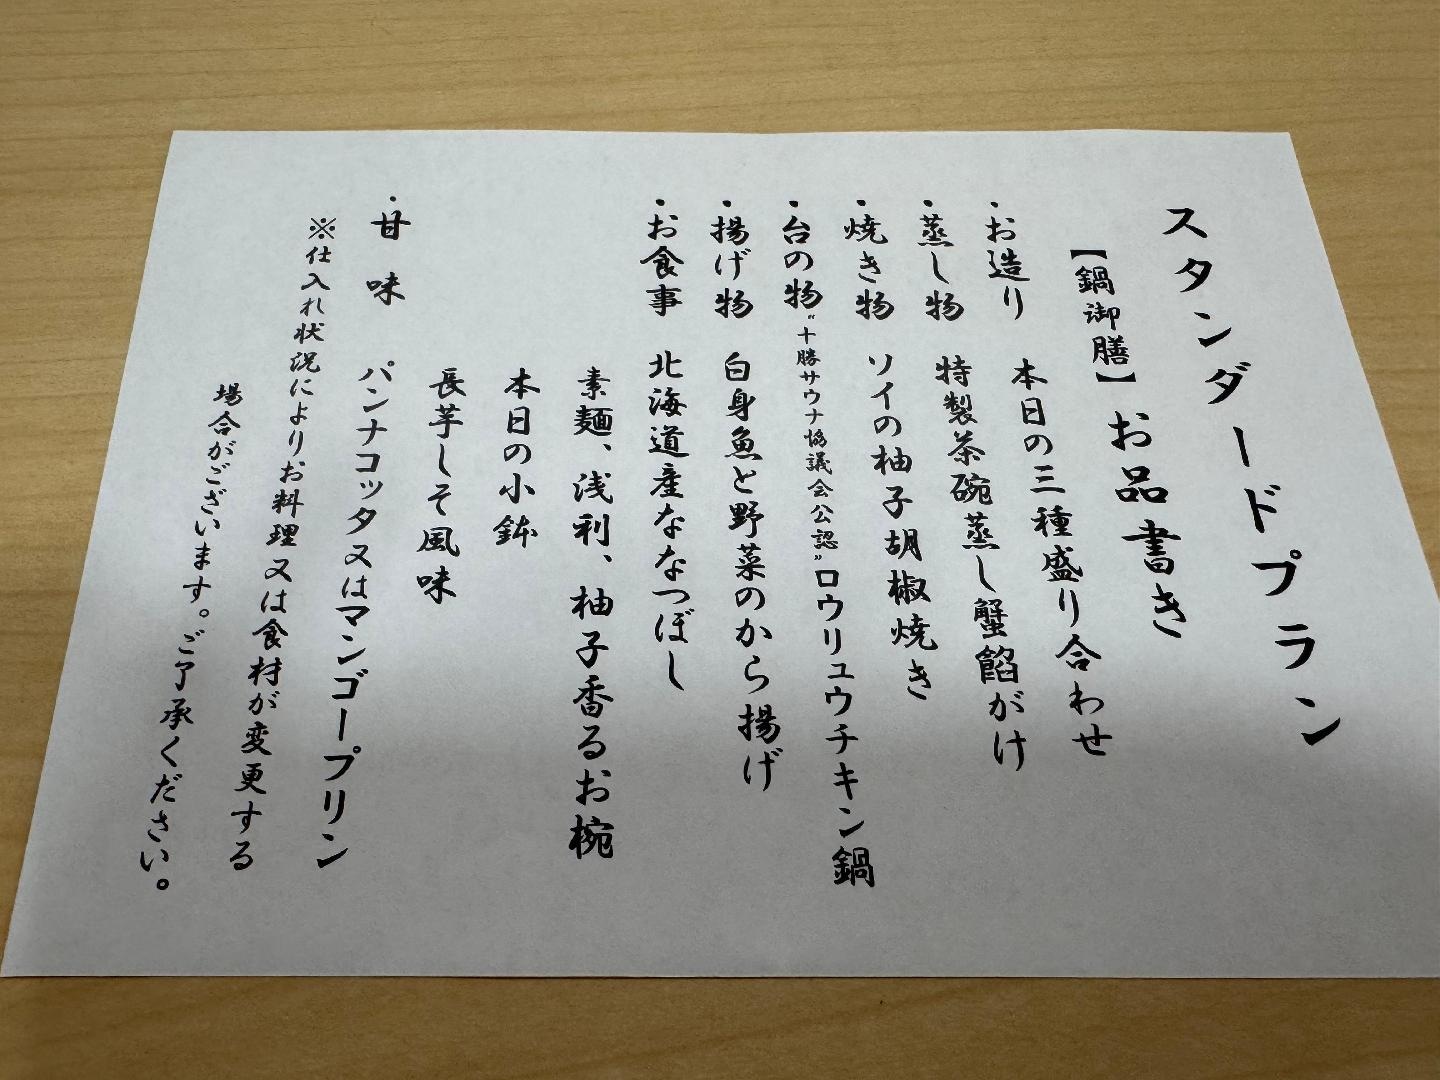 スタンダードプラン
【鍋御膳】お品書き
・お造り　本日の三種盛り合わせ
・蒸し物　特製茶碗蒸し蟹餡がけ
・焼き物　ソイの柚子胡椒焼き
・台の物“十勝サウナ協議会公認”ロウリュウチキン鍋
・揚げ物　白身魚と野菜のから揚げ
・お食事　北海道産ななつぼし
素麺、浅利、柚子香るお椀
本日の小鉢
長芋しそ風味
・甘　味　パンナコッタ又はマンゴープリン
※仕入れ状況によりお料理又は食材が変更する
場合がございます。ご了承ください。